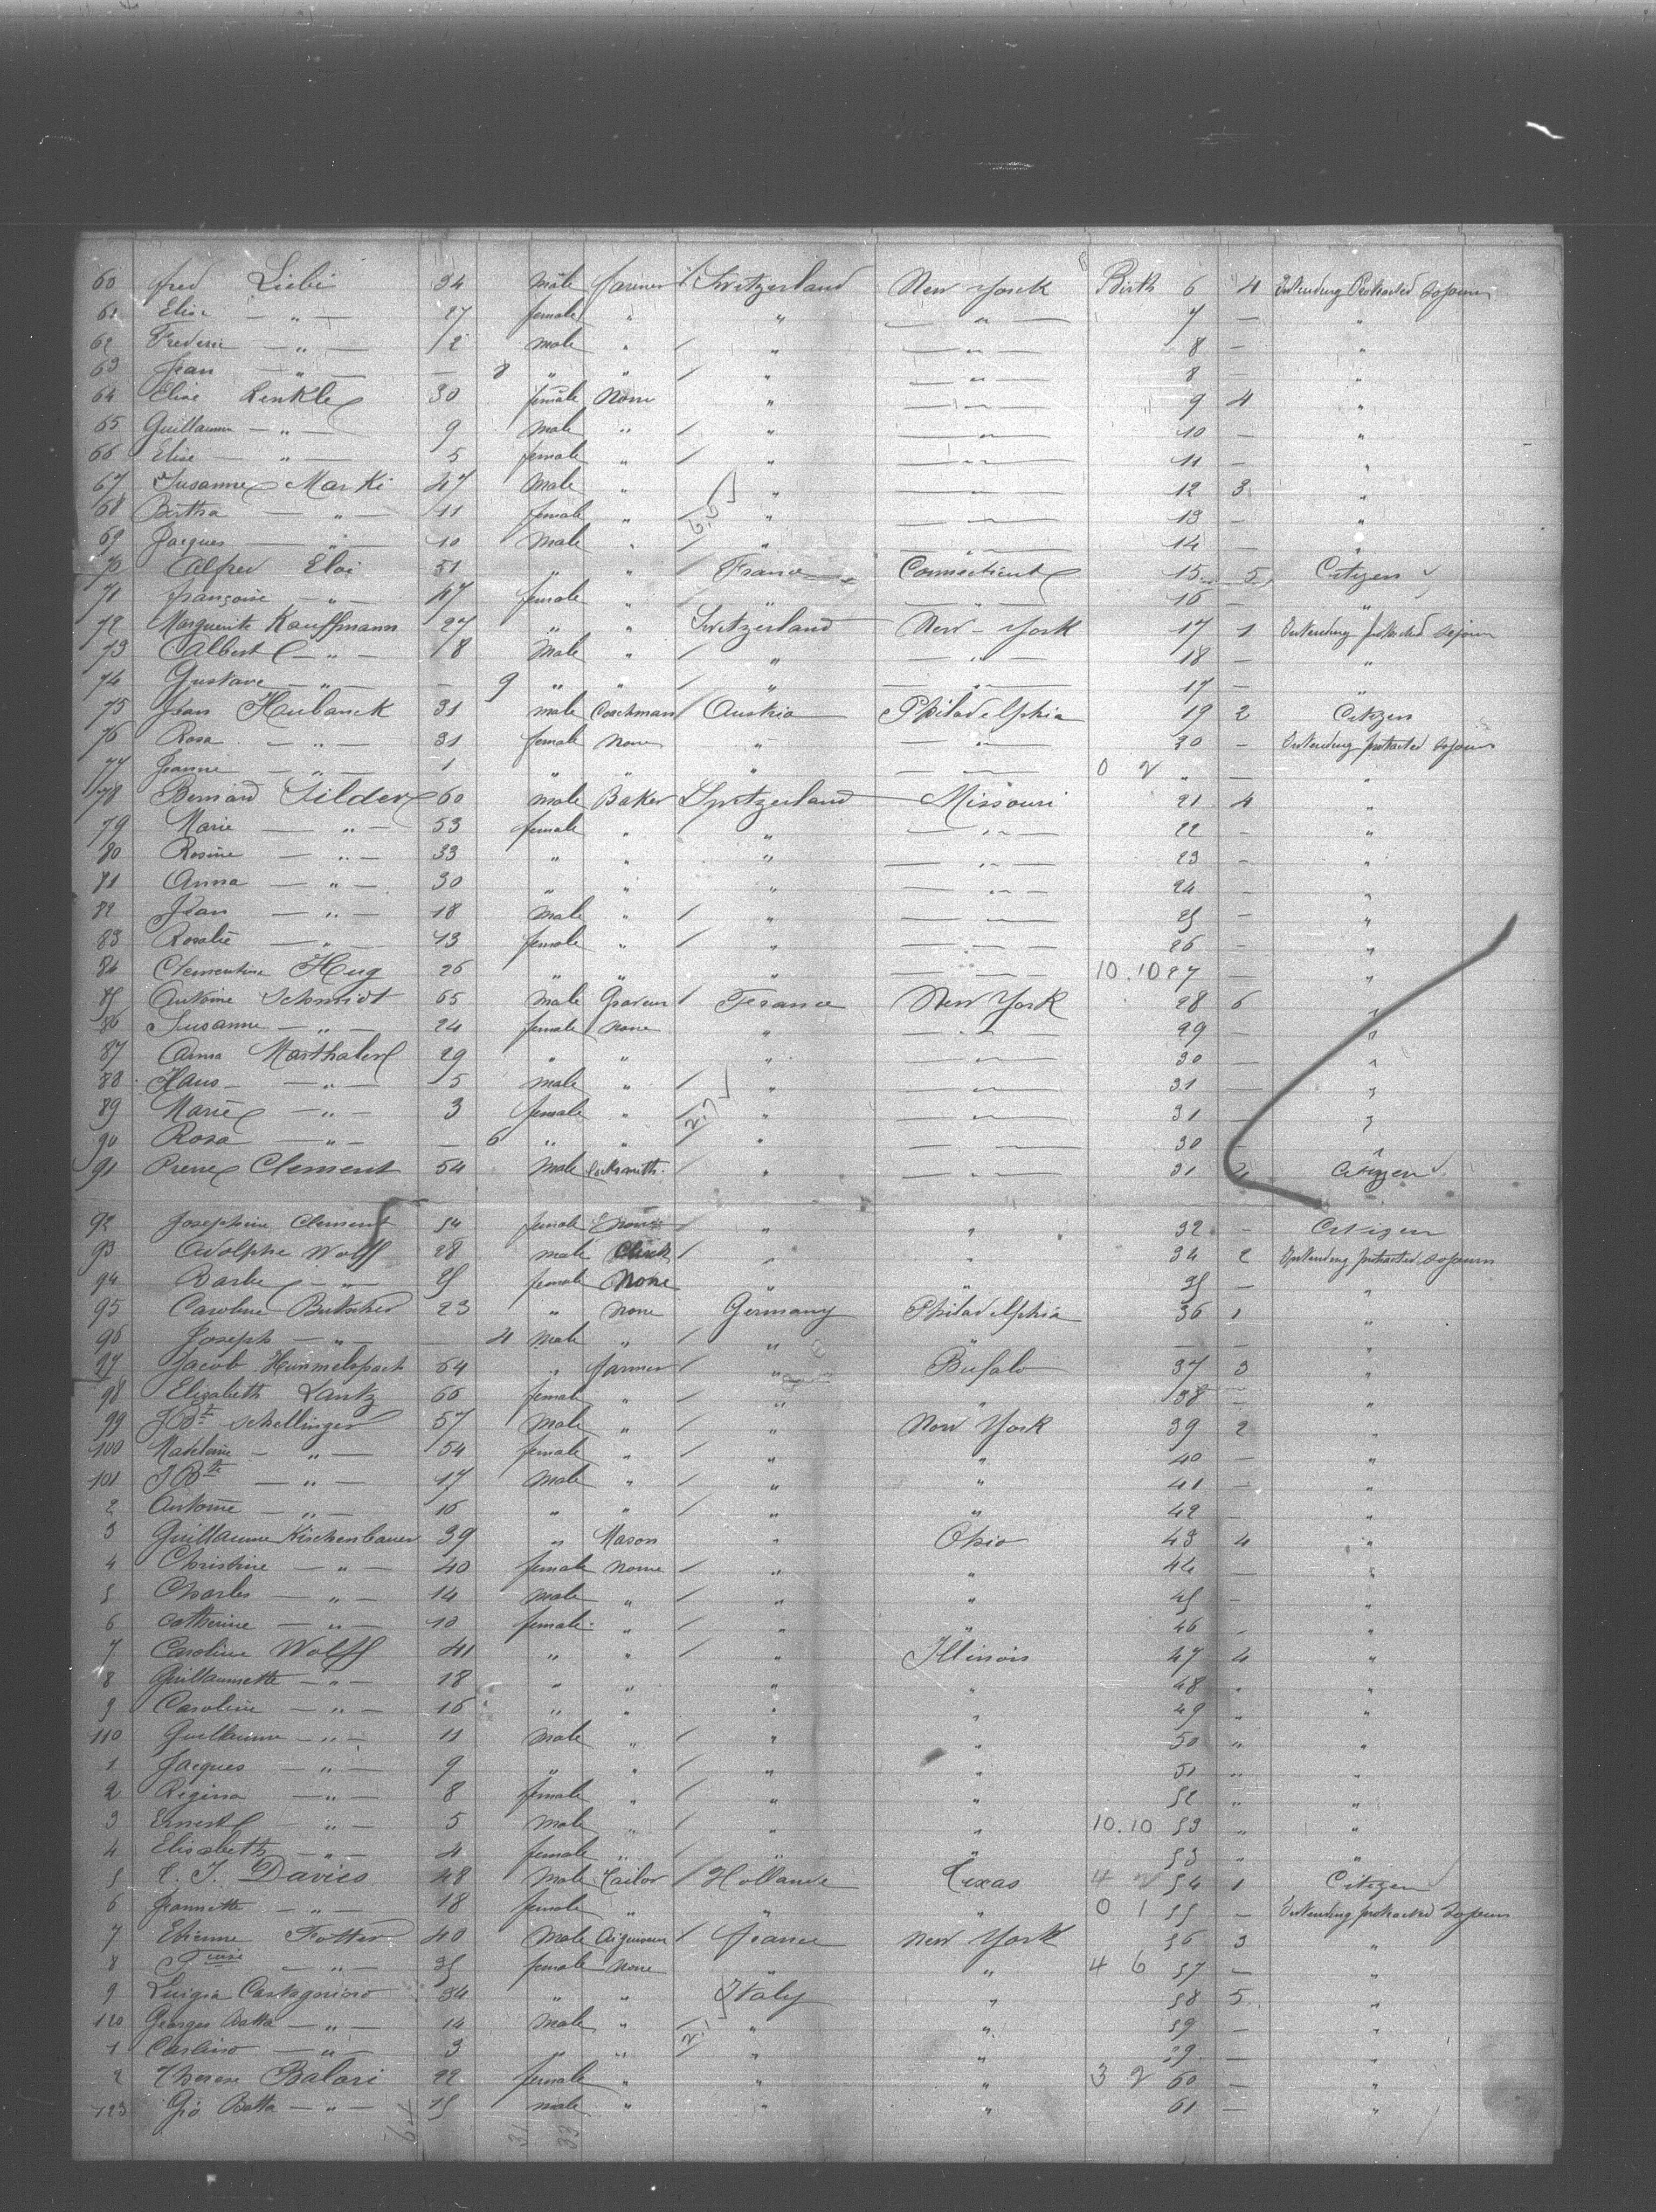 60 fred Liebi 34 male farmer Switzerland New Yorck Birth 6 4 Intending Protracted Sojourn
61 Elise — " — 27 female " " — " — 7 — "
62 Frederic — " — 2 male " " — " — 8 — "
63 Jean — " — — 8 " " " — " — 8 — "
64 Elise Renkle 30 female None " — " — 9 4 "
65 Guillaume — " — 9 male " " — " — 10 — "
66 Elise — " — 5 female " " — " — 11 — "
67 Susanne Marki 47 Male " " — " — 12 3 "
68 Bertha — " — 11 female " " — " — 13 — "
69 Jacques — " — 10 Male " " — " — 14 — "
70 Alfred Eloi 51 " " France Connecticut 15 5 Citizen
71 françoise — " — 47 female " " — " — 16 — "
72 Marguerite Kauffmann 27 " " Switzerland New-York 17 1 Intending protracted sejour
73 Albert — " — 8 Male " " — " — 18 — "
74 Gustave — " — — 9 " " " — " — 17 — "
75 Jean Hubanck 31 male Coachman Austria Philadelphia 19 2 Citizen
76 Rosa — " — 31 female None " — " — 20 — Intending protracted Sojourn
77 Jeanne — " — 1 " " " — " — 0 2 " — "
78 Bernard Tilder 60 male Baker Switzerland Missouri 21 4 "
79 Marie — " — 53 female " " — " — 22 — "
80 Rosine — " — 33 " " " — " — 23 — "
81 Anna — " — 30 " " " — " — 24 "
82 Jean — " — 18 male " " — " — 25 — "
83 Rosalie — " — 13 female " " — " — 26 — "
84 Clementine Hug 26 " " " — " — 10.10 27 — "
85 Antoine Schmidt 65 male Graveur France New York 28 6 "
86 Susanne — " — 24 female none " — " — 29 — "
87 Anna Marthaler 29 " " " — " — 30 — "
88 Hans — " — 5 male " " — " — 31 — "
89 Marie — " — 3 female " " — " — 31 — "
90 Rosa — " — — 6 " " " — " — 30 — "
91 Pierre Clement 54 Male locksmith " — " — 31 2 Citizen
92 Josephine Clement 54 female none " " 32 — Citizen
93 Adolphe Wolff 28 male Clerk " " 34 2 Intending protracted sojourn
94 Barbe — " — 25 female None " " 35 — "
95 Caroline Butscher 23 " none Germany Philadelphia 36 1 "
96 Joseph — " — — 4 male " " " — — "
97 Jacob Hummelspach 64 " farmer " Bufalo 37 3 "
98 Elizabeth Lantz 66 female " " " 38 — "
99 J Bte Schellinger 57 Male " " New York 39 2 "
100 Madeleine — " — 54 female " " " 40 — "
101 J Bte — " — 17 Male " " " 41 — "
2 Antoine — " — 16 " " " " 42 — "
3 Guillaume Kischenbauer 39 " Mason " Ohio 43 4 "
4 Christine — " — 40 female None " " 44 — "
5 Charles — " — 14 Male " " " 45 — "
6 Catherine — " — 10 female " " " 46 — "
7 Caroline Wolff 41 " " " Illinois 47 4 "
8 Guillaumette — " — 18 " " " " 48 " "
9 Caroline — " — 16 " " " " 49 " "
110 Guillaume — " — 11 Male " " " 50 " "
1 Jacques — " — 9 " " " " 51 " "
2 Regina — " — 8 female " " " 52 " "
3 Ernest — " — 5 Male " " " 10.10 53 " "
4 Elisabeth — " — 4 female " " " 53 " "
5 E. J. Davies 48 Male Tailor Hollande Texas 4 2 54 1 Citizen
6 Jeannette — " — 18 female " " " 0 1 55 — Intending protracted Sojourn
7 Etienne Fotter 40 Male Aiguiseur france New York 56 3 "
8 — " — 35 female None " " 4 6 57 — "
9 Luigia Castagnino 34 " " Italy " 58 5 "
120 Georges Batta — " — 14 Male " " " 59 — "
1 Carlino — " — 3 " " " " 59 — "
2 Therese Balari 22 female " " " 3 2 60 — "
123 Gio Batta — " — 15 male " " " 61 — "